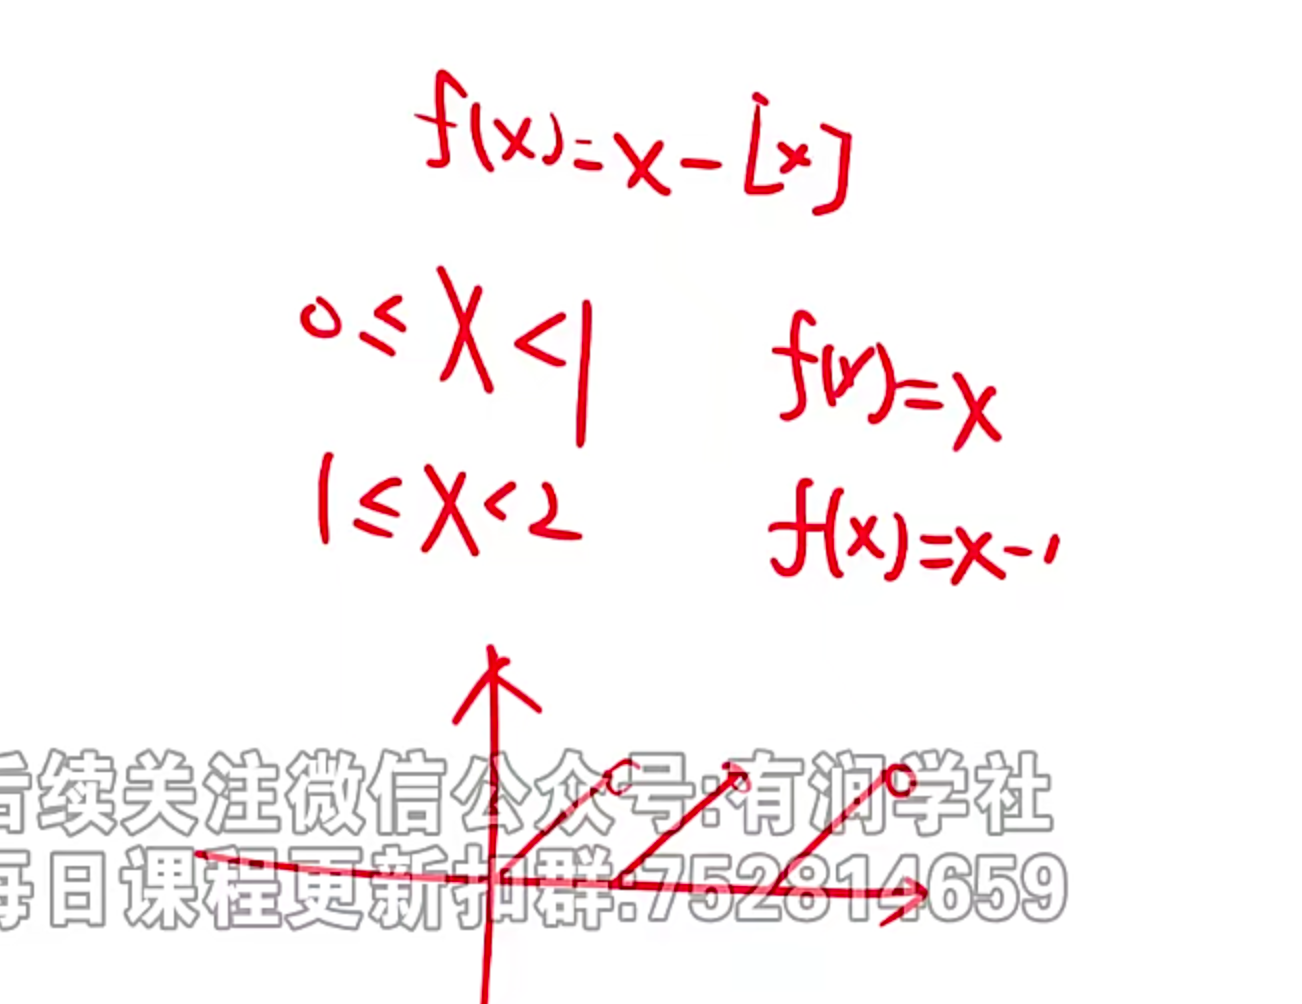 f(x)=x-[x]
0≤x<1 f(x)=x
1≤x<2 f(x)=x-1
后续关注微信公众号:有润学社
每日课程更新扣群:752814659